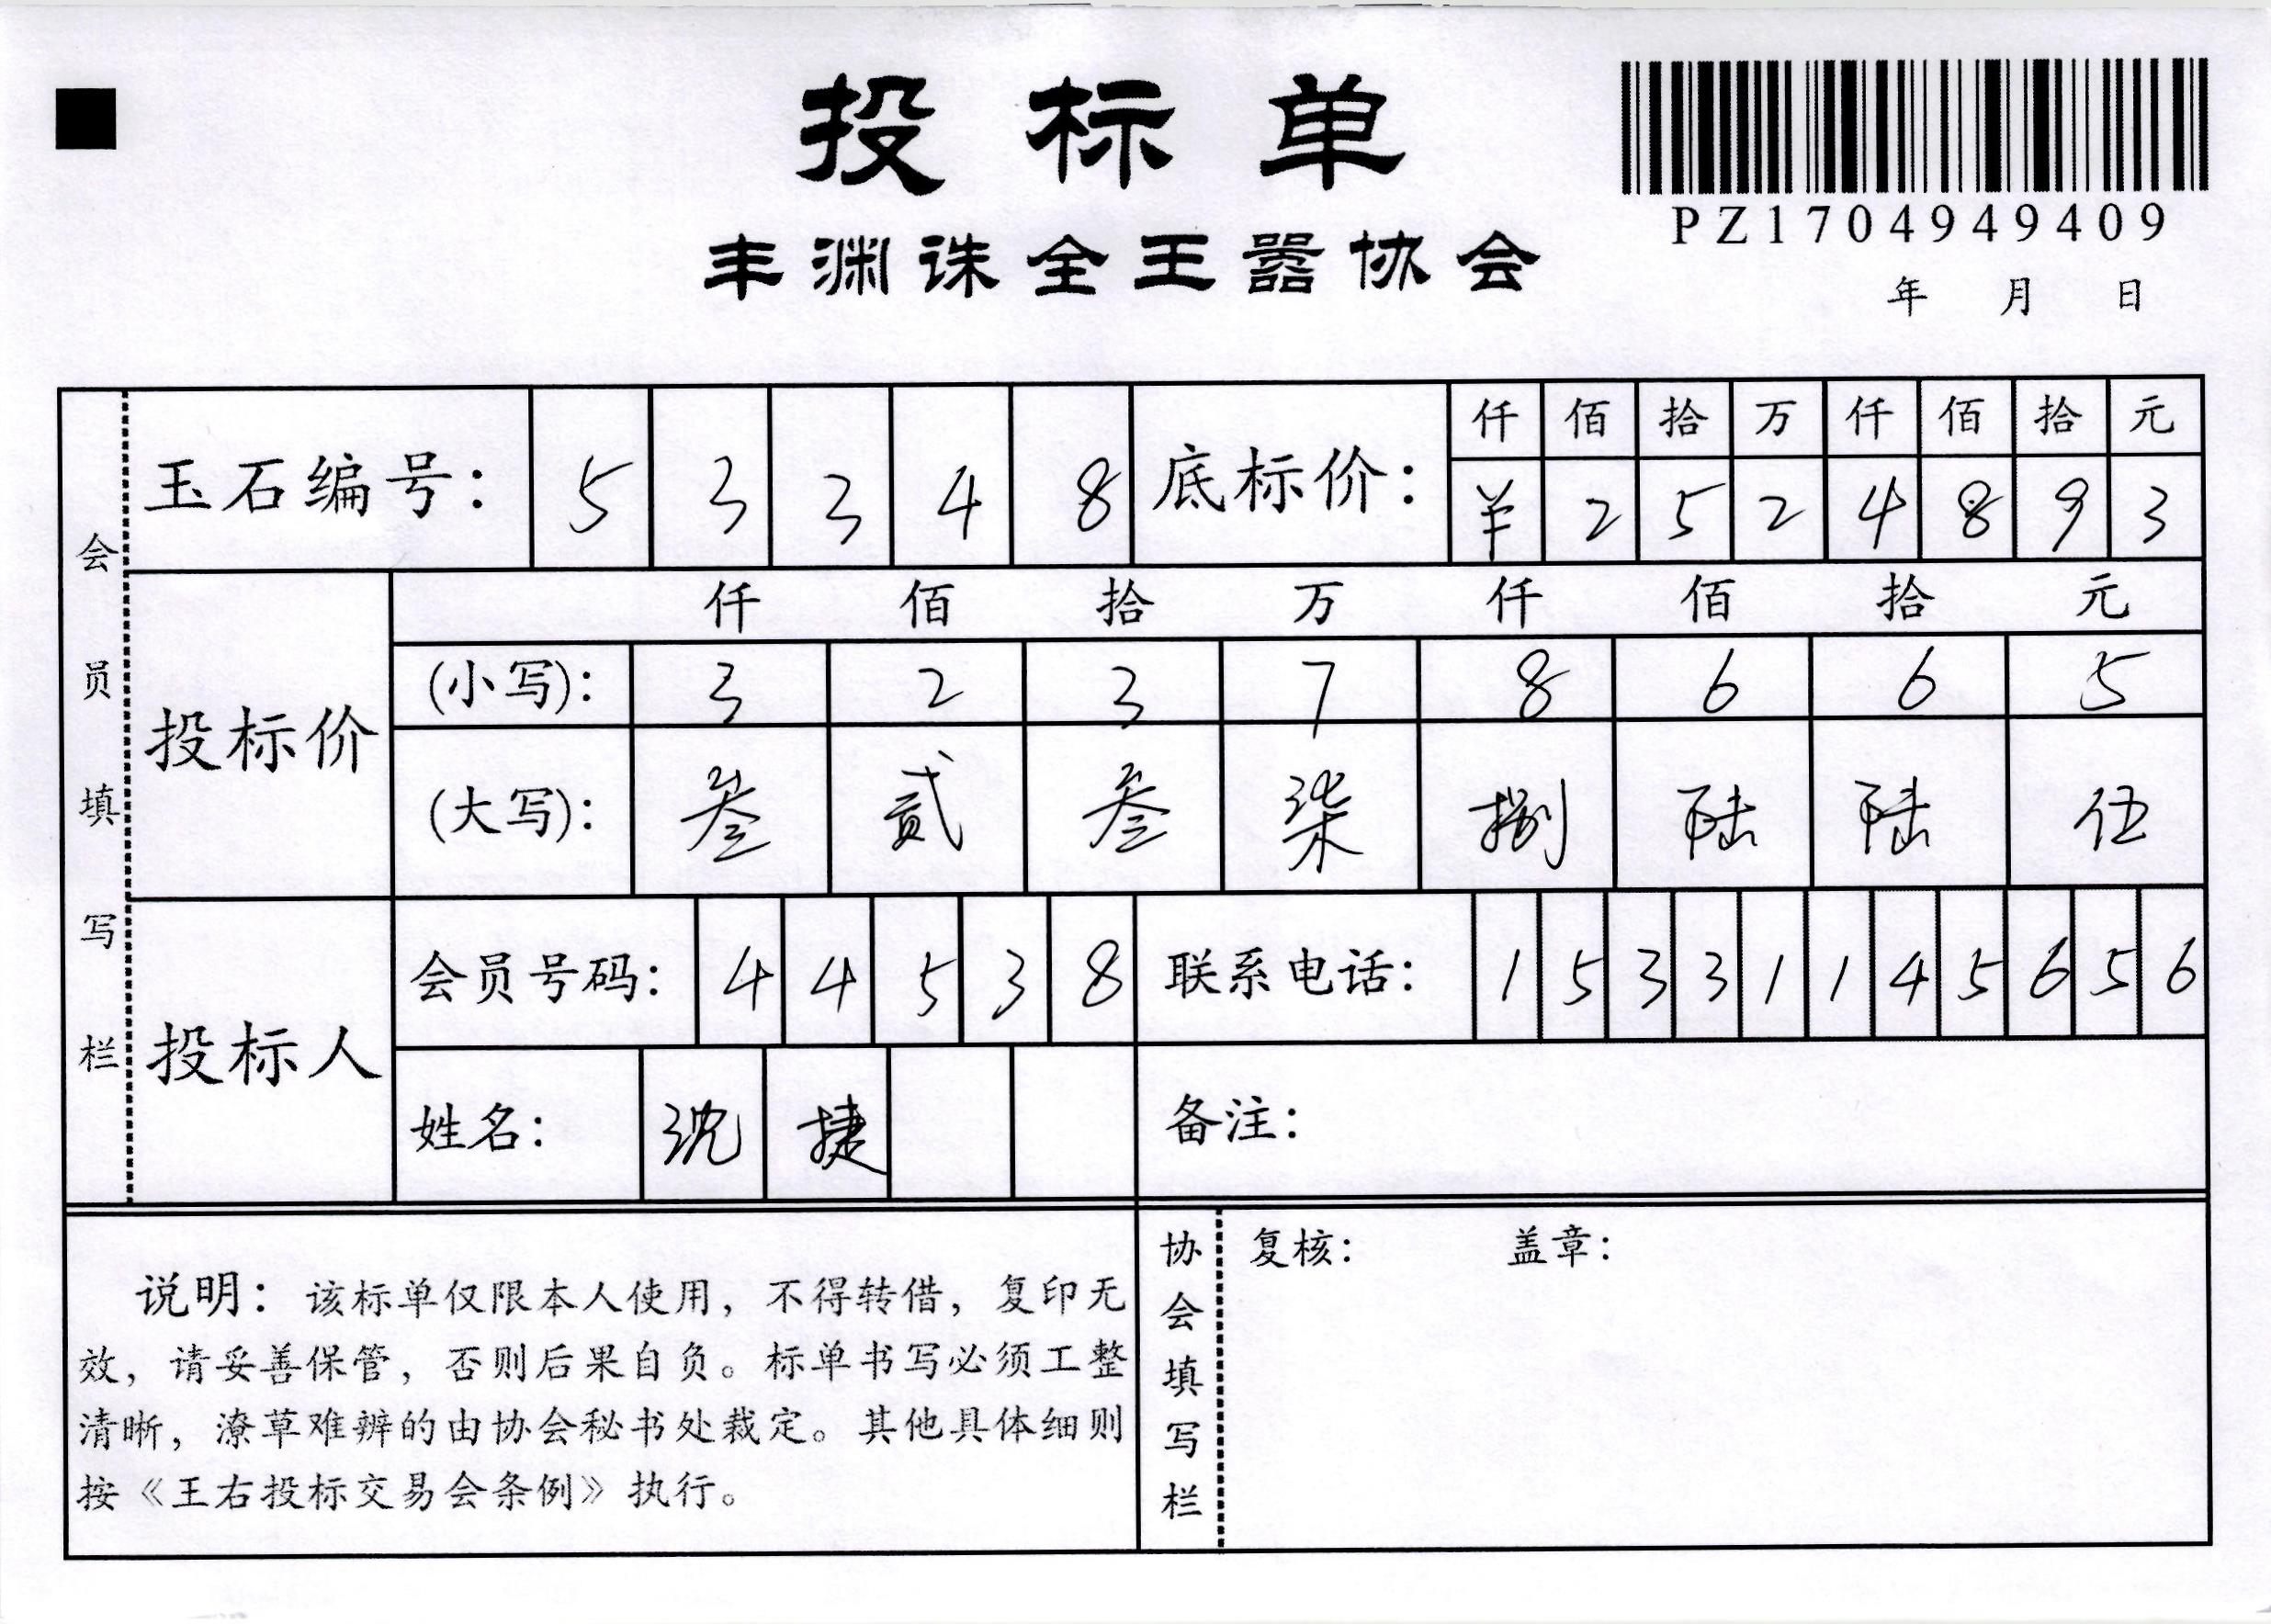 投标单
PZ1704949409
丰渊诛全王嚣协会
年 月 日
会员填写栏
玉石编号: 5 3 3 4 8
底标价:
仟 佰 拾 万 仟 佰 拾 元
¥ 2 5 2 4 8 9 3
投标价
仟 佰 拾 万 仟 佰 拾 元
(小写): 3 2 3 7 8 6 6 5
(大写): 叁 贰 叁 柒 捌 陆 陆 伍
投标人
会员号码: 4 4 5 3 8
联系电话: 1 5 3 3 1 1 4 5 6 5 6
姓名: 沈 捷
备注:
说明：该标单仅限本人使用，不得转借，复印无
效，请妥善保管，否则后果自负。标单书写必须工整
清晰，潦草难辨的由协会秘书处裁定。其他具体细则
按《王右投标交易会条例》执行。
协会填写栏
复核: 盖章: